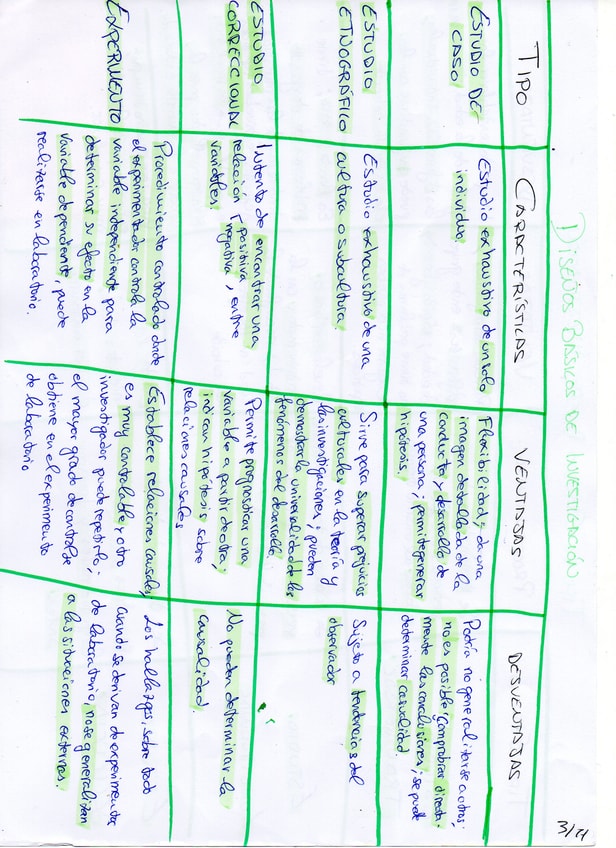 DISEÑOS BÁSICOS DE INVESTIGACIÓN
TIPO
CARACTERÍSTICAS
VENTAJAS
DESVENTAJAS
ESTUDIO DE
CASO
Estudio exhaustivo de un solo
individuo.
Flexibilidad y da una
imagen detallada de la
conducta y desarrollo de
una persona; permite generar
hipótesis.
Podría no generalizarse a otros;
no es posible comprobar directa-
mente las conclusiones; se puede
determinar casualidad.
ESTUDIO
ETNOGRÁFICO
Estudio exhaustivo de una
cultura o subcultura.
Sirve para superar prejuicios
culturales en la teoría y
las investigaciones; pueden
demostrar la universalidad de los
fenómenos del desarrollo.
Sujeto a tendencias del
observador
ESTUDIO
CORRECCIONAL
Intento de encontrar una
relación positiva
negativa, entre
variables.
Permite prognosticar una
variable a partir de otra;
indican hipótesis sobre
relaciones causales
No pueden determinar la
causalidad.
EXPERIMENTO
Procedimiento controlado donde
el experimentador controla la
variable independiente para
determinar su efecto en la
variable dependiente, puede
realizarse en laboratorio.
Establece relaciones causales,
es muy controlable y otro
investigador puede repetirlo;
el mayor grado de control se
obtiene en el experimento
de laboratorio
Los hallazgos, sobre todo
cuando se derivan de experimentos
de laboratorio, no se generalizan
a las situaciones externas.